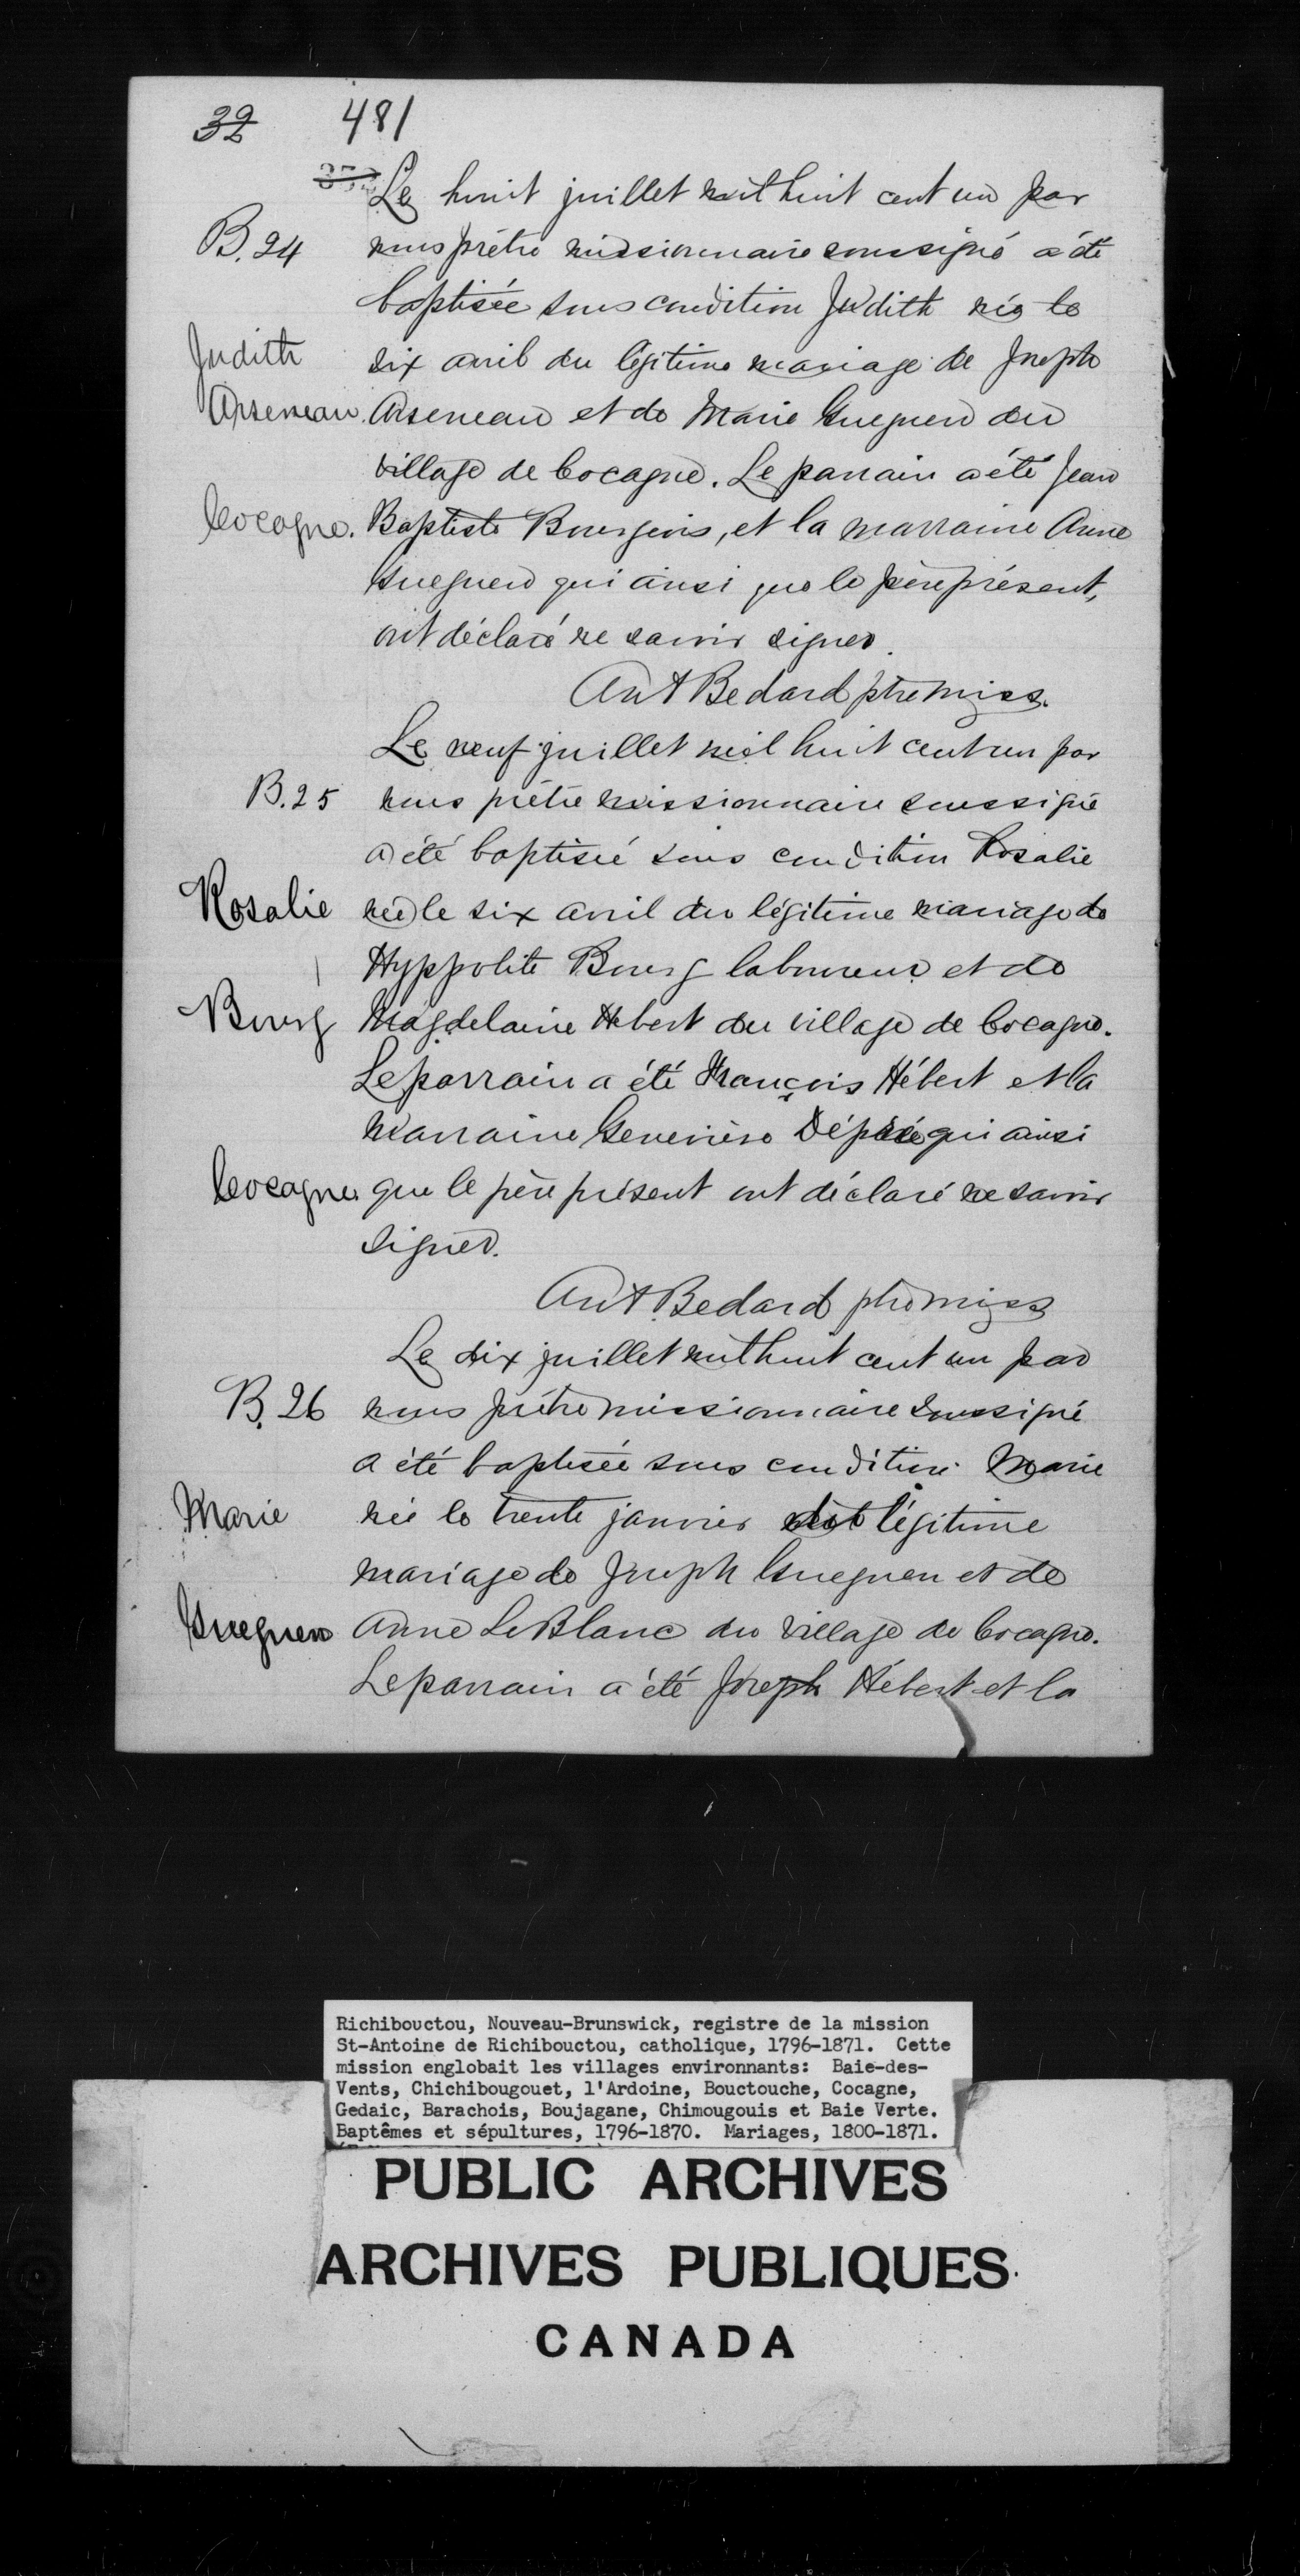 32 481
Le huit juillet mil huit cent un par
B. 24 nous prêtre missionnaire soussigné a été
baptisée sous condition Judith née le
Judith six avril du légitime mariage de Joseph
Arseneau Arseneau et de Marie Gueguen du
village de Cocagne. Le parrain a été Jean
Cocagne. Baptiste Bourgeois, et la marraine Anne
Gueguen qui ainsi que le père présent,
ont déclaré ne savoir signer.
Ant Bedard ptre miss.
Le neuf juillet mil huit cent un par
B. 25 nous prêtre missionnaire soussigné
a été baptisée sous condition Rosalie
Rosalie née le six avril du légitime mariage de
Hyppolite Bourg laboureur et de
Bourg Magdelaine Hebert du village de Cocagne.
Le parrain a été François Hébert et la
marraine Geneviève qui ainsi
Cocagne que le père présent ont déclaré ne savoir
signer.
Ant Bedard ptre miss
Le dix juillet mil huit cent un par
B. 26 nous prêtre missionnaire soussigné
a été baptisée sous condition Marie
Marie née le trente janvier légitime
mariage de Joseph Gueguen et de
Gueguen Anne LeBlanc du village de Cocagne.
Le parrain a été Joseph Hébert et la
Richibouctou, Nouveau-Brunswick, registre de la mission
St-Antoine de Richibouctou, catholique, 1796-1871. Cette
mission englobait les villages environnants: Baie-des-
Vents, Chichibougouet, l'Ardoine, Bouctouche, Cocagne,
Gedaic, Barachois, Boujagane, Chimougouis et Baie Verte.
Baptêmes et sépultures, 1796-1870. Mariages, 1800-1871.
PUBLIC ARCHIVES
ARCHIVES PUBLIQUES
CANADA